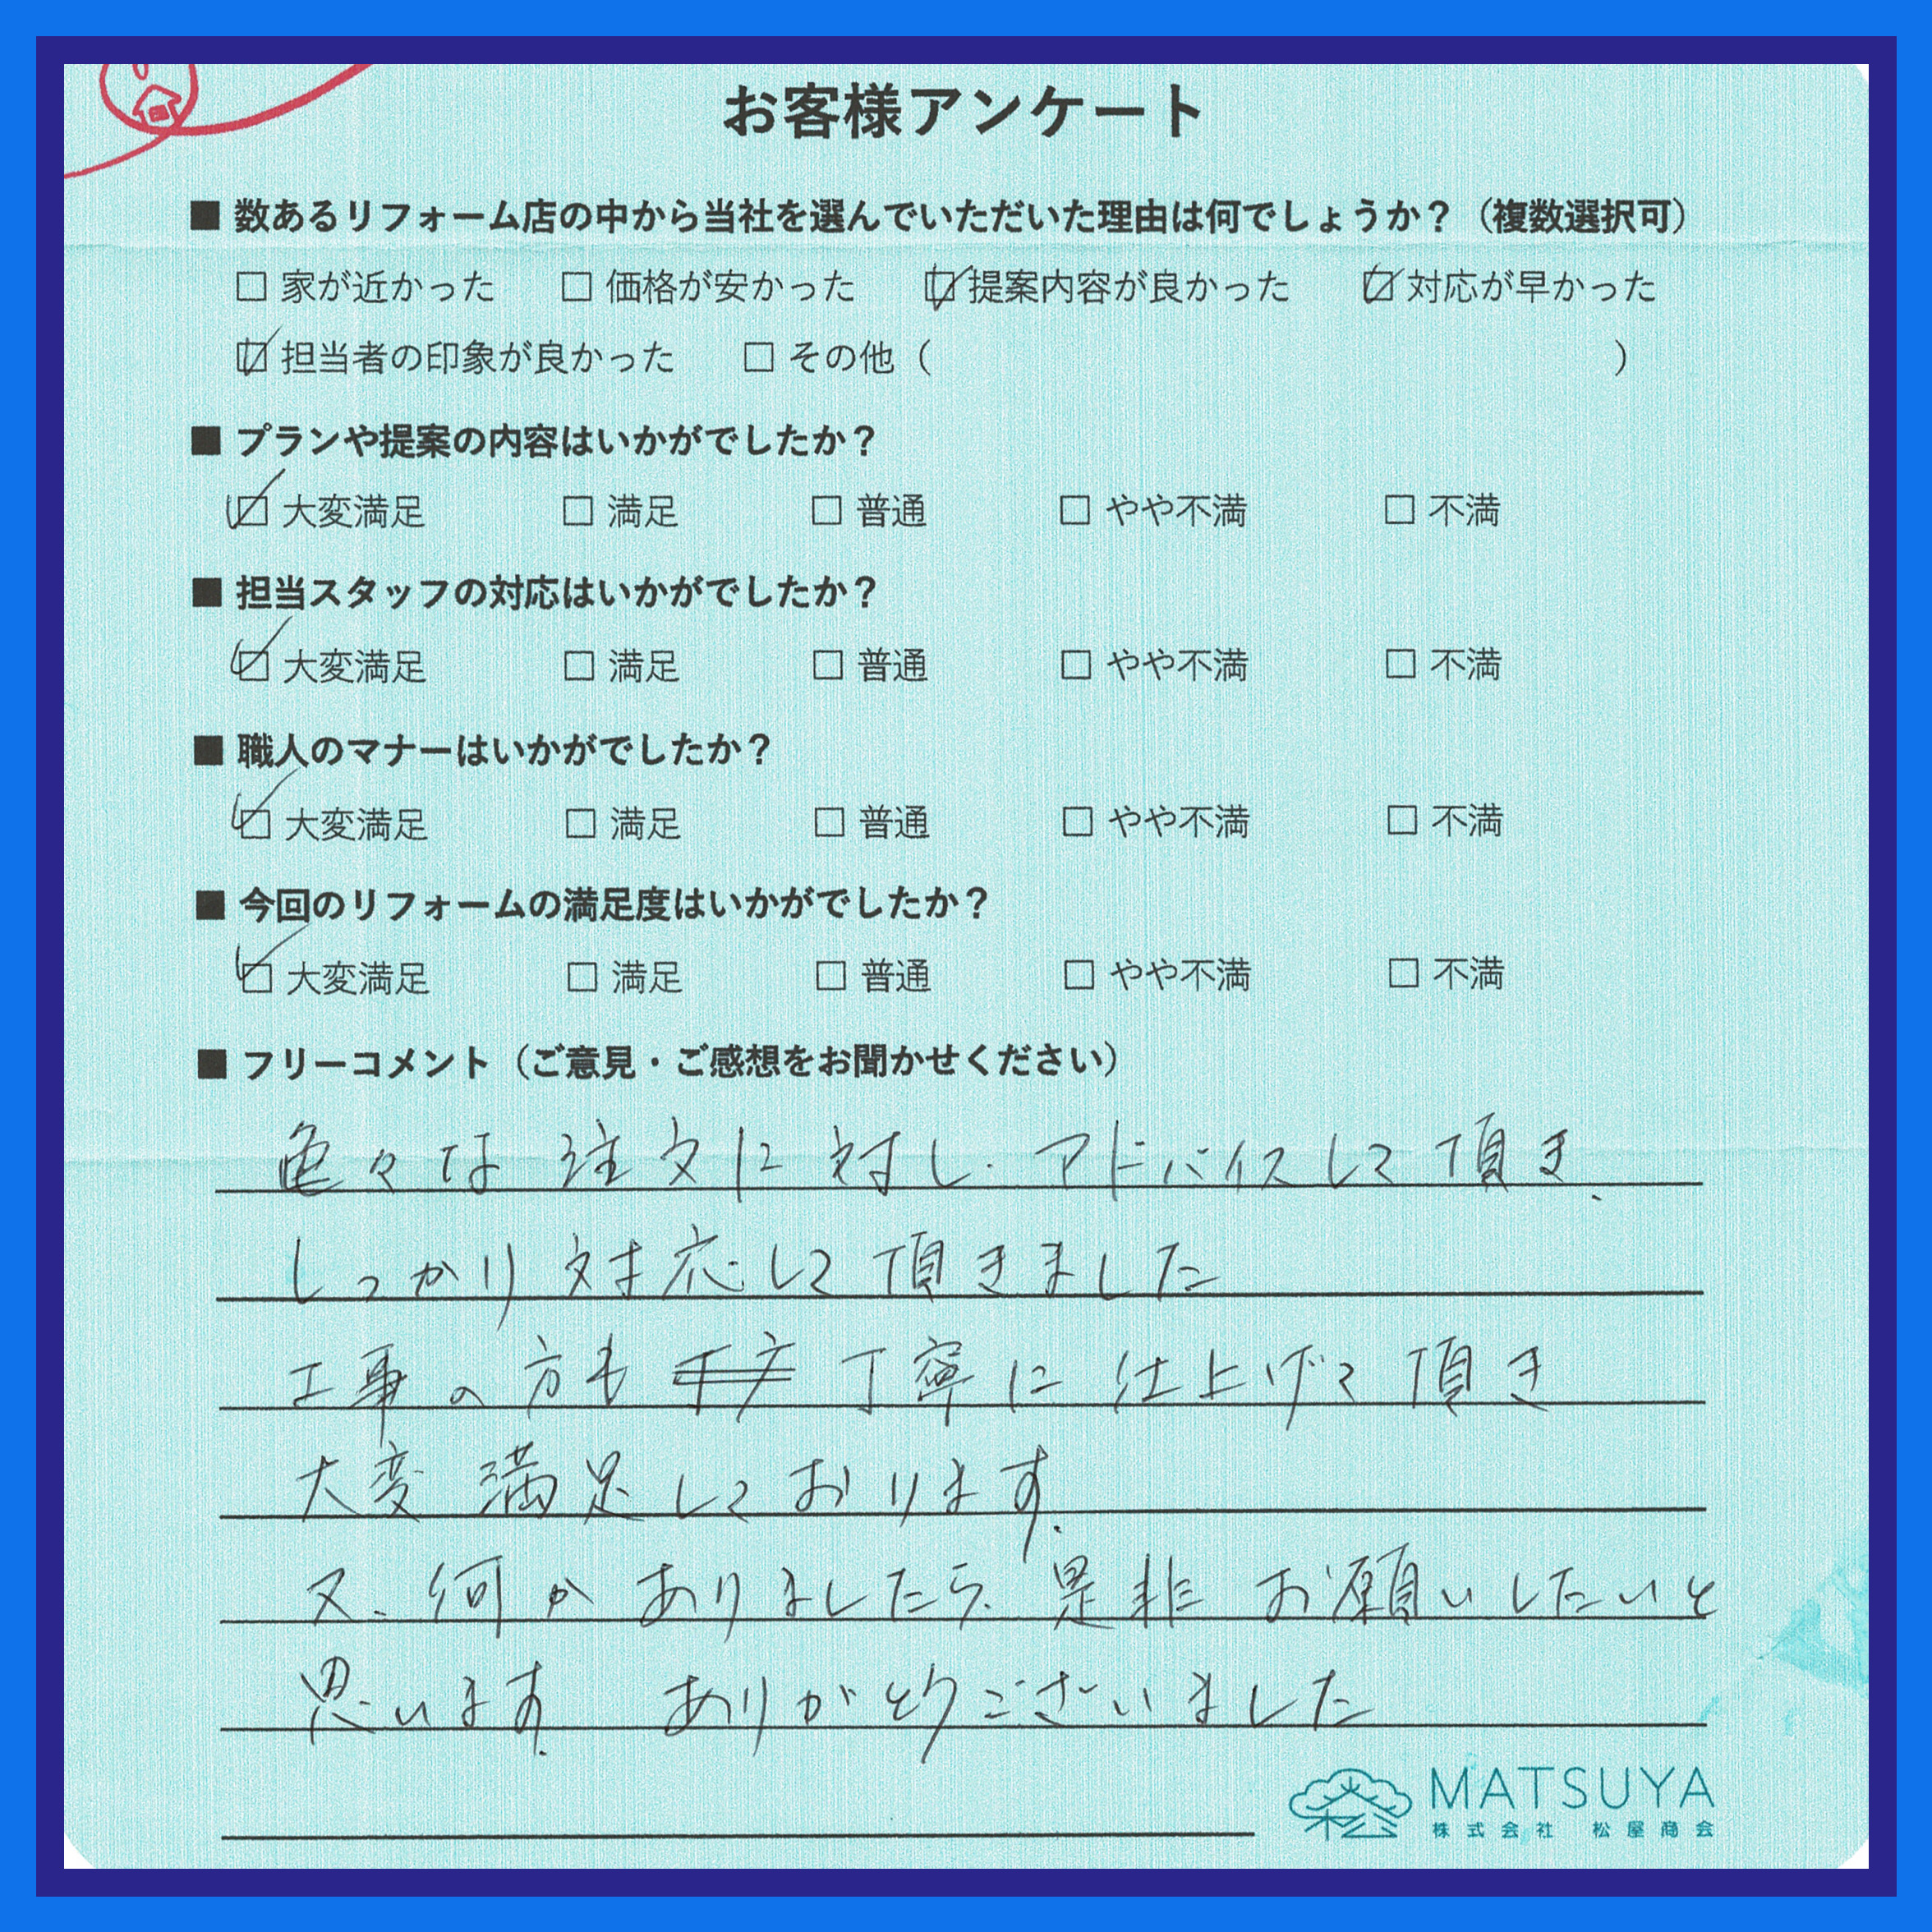 お客様アンケート
■ 数あるリフォーム店の中から当社を選んでいただいた理由は何でしょうか？（複数選択可）
□ 家が近かった □ 価格が安かった ☑ 提案内容が良かった ☑ 対応が早かった
☑ 担当者の印象が良かった □ その他（ ）
■ プランや提案の内容はいかがでしたか？
☑ 大変満足 □ 満足 □ 普通 □ やや不満 □ 不満
■ 担当スタッフの対応はいかがでしたか？
☑ 大変満足 □ 満足 □ 普通 □ やや不満 □ 不満
■ 職人のマナーはいかがでしたか？
☑ 大変満足 □ 満足 □ 普通 □ やや不満 □ 不満
■ 今回のリフォームの満足度はいかがでしたか？
☑ 大変満足 □ 満足 □ 普通 □ やや不満 □ 不満
■ フリーコメント（ご意見・ご感想をお聞かせください）
色々な注文に対し、アドバイスして頂き、
しっかり対応して頂きました
工事の方も 丁寧に仕上げて頂き
大変満足しております。
又、何かありましたら、是非お願いしたいと
思います。 ありがとうございました
MATSUYA
株式会社 松屋商会